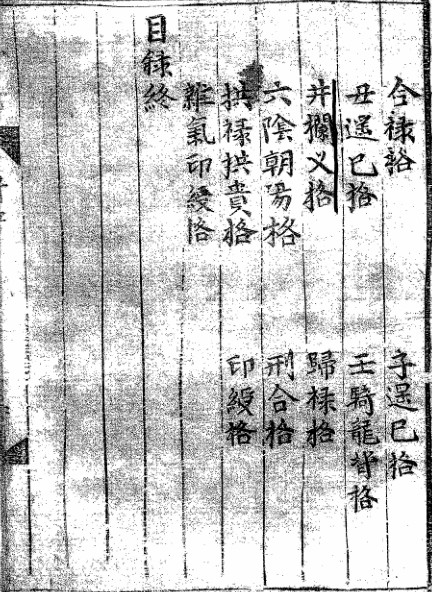 合禄格　子遥巳格
丑遥巳格　壬騎龍背格
井欄义格　歸禄格
六陰朝陽格　刑合格
拱禄拱貴格　印綬格
雜氣印綬格
目録終